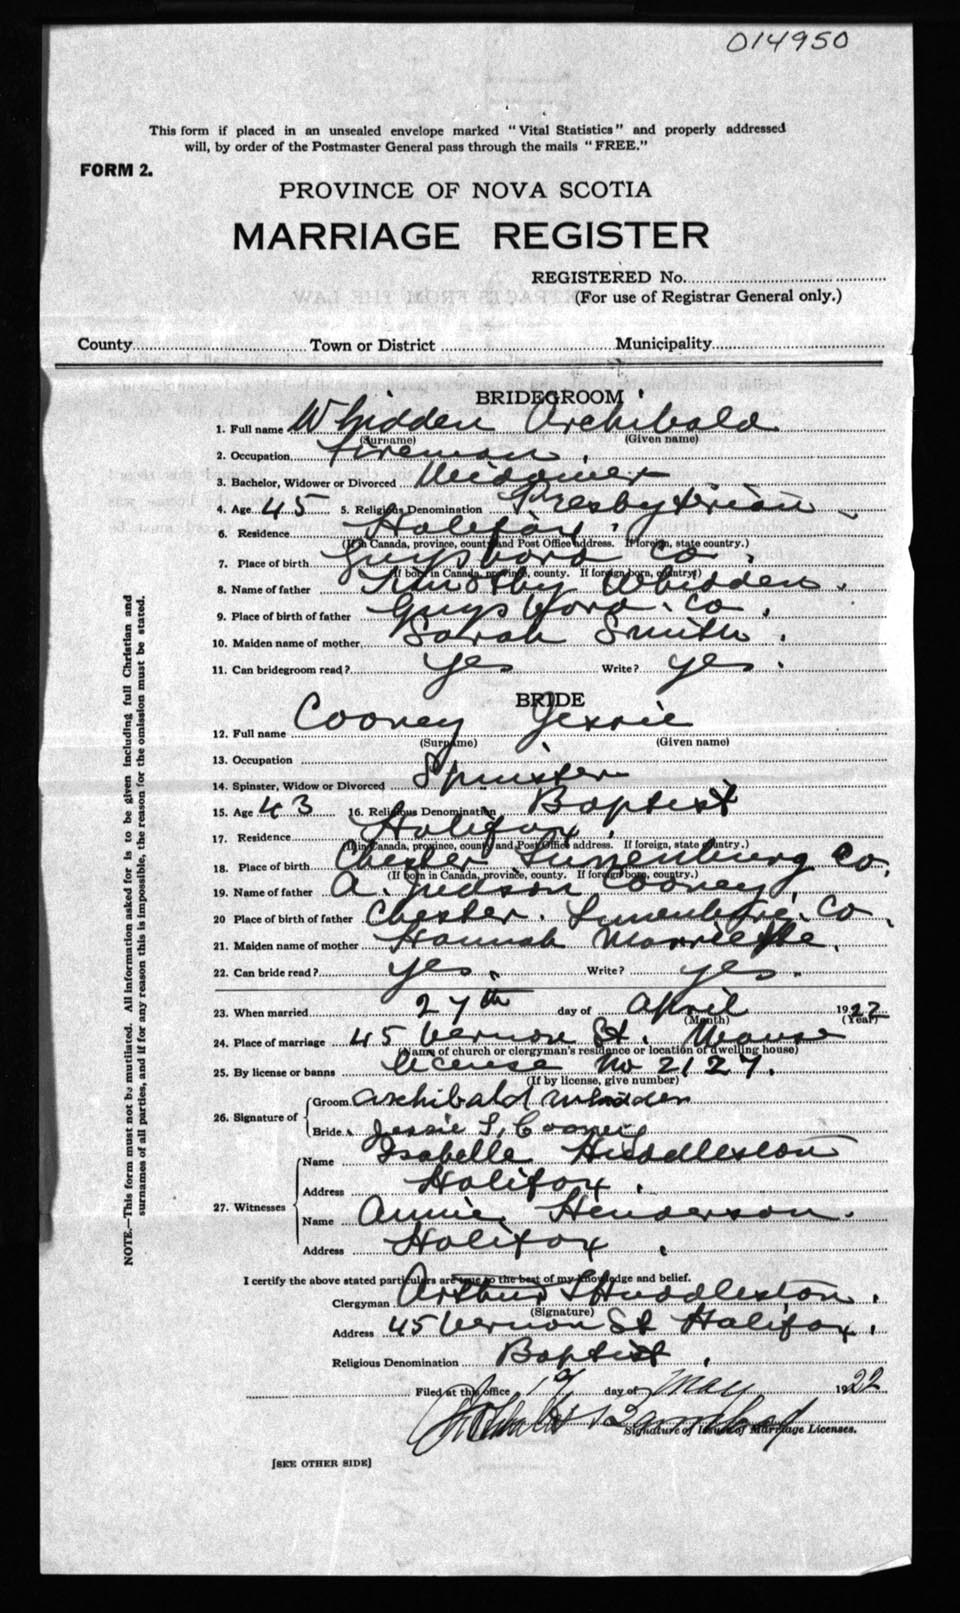 014950
This form if placed in an unsealed envelope marked "Vital Statistics" and properly addressed
will, by order of the Postmaster General pass through the mails "FREE."
FORM 2.
PROVINCE OF NOVA SCOTIA
MARRIAGE REGISTER
REGISTERED No.
(For use of Registrar General only.)
County Town or District Municipality
BRIDEGROOM
1. Full name Whidden Archibald
(Surname) (Given name)
2. Occupation Fireman.
3. Bachelor, Widower or Divorced Widower
4. Age 45 5. Religious Denomination Presbyterian
6. Residence Halifax.
(If in Canada, province, county and Post Office address. If foreign, state country.)
7. Place of birth Guysboro Co.
(If born in Canada, province, county. If foreign born, country.)
8. Name of father Timothy Whidden.
9. Place of birth of father Guysboro. Co.
10. Maiden name of mother Sarah Smith.
11. Can bridegroom read? yes Write? yes.
BRIDE
12. Full name Cooney Jessie
(Surname) (Given name)
13. Occupation
14. Spinster, Widow or Divorced Spinster
15. Age 43 16. Religious Denomination Baptist
17. Residence Halifax.
(If in Canada, province, county and Post Office address. If foreign, state country.)
18. Place of birth Chester Lunenburg Co.
(If born in Canada, province, county. If foreign born, country.)
19. Name of father A. Judson Cooney.
20 Place of birth of father Chester. Lunenburg. Co.
21. Maiden name of mother Hannah
22. Can bride read? yes. Write? yes.
23. When married 27th day of April 1922
(Month) (Year)
24. Place of marriage 45 Vernon St. Manse
(Name of church or clergyman's residence or location of dwelling house)
25. By license or banns license No 2127.
(If by license, give number)
26. Signature of Groom Archibald Whidden
Bride Jessie S. Cooney
27. Witnesses Name Isabelle Huddleston
Address Halifax.
Name Annie Henderson.
Address Halifax.
I certify the above stated particulars are true to the best of my knowledge and belief.
Clergyman Arthur S Huddleston.
(Signature)
Address 45 Vernon St Halifax.
Religious Denomination Baptist.
Filed at this office day of May 1922
Signature of Issuer of Marriage Licenses.
[SEE OTHER SIDE]
NOTE.—This form must not be mutilated. All information asked for is to be given including full Christian and
surnames of all parties, and if for any reason this is impossible, the reason for the omission must be stated.